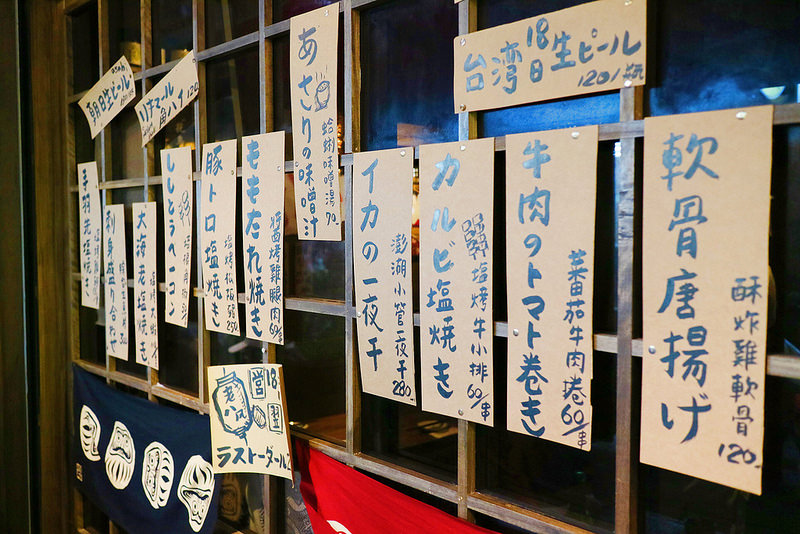 台湾18日生ビール
120/瓶
軟骨唐揚げ
酥炸雞軟骨
120.
牛肉のトマト巻き
蕃茄牛肉捲
60/串
カルビ塩焼き
塩烤牛小排
60/串
イカの一夜干
澎湖小管一夜干
280.
あさりの味噌汁
蛤蜊味噌湯
90
ももたれ焼き
醬烤雞腿肉
60/串
豚トロ塩焼き
250
ししとうベーコン
大海老塩焼き
刺身盛り合わせ
手羽先塩焼き
朝日生ビール
ラストーダール
営
18
翌